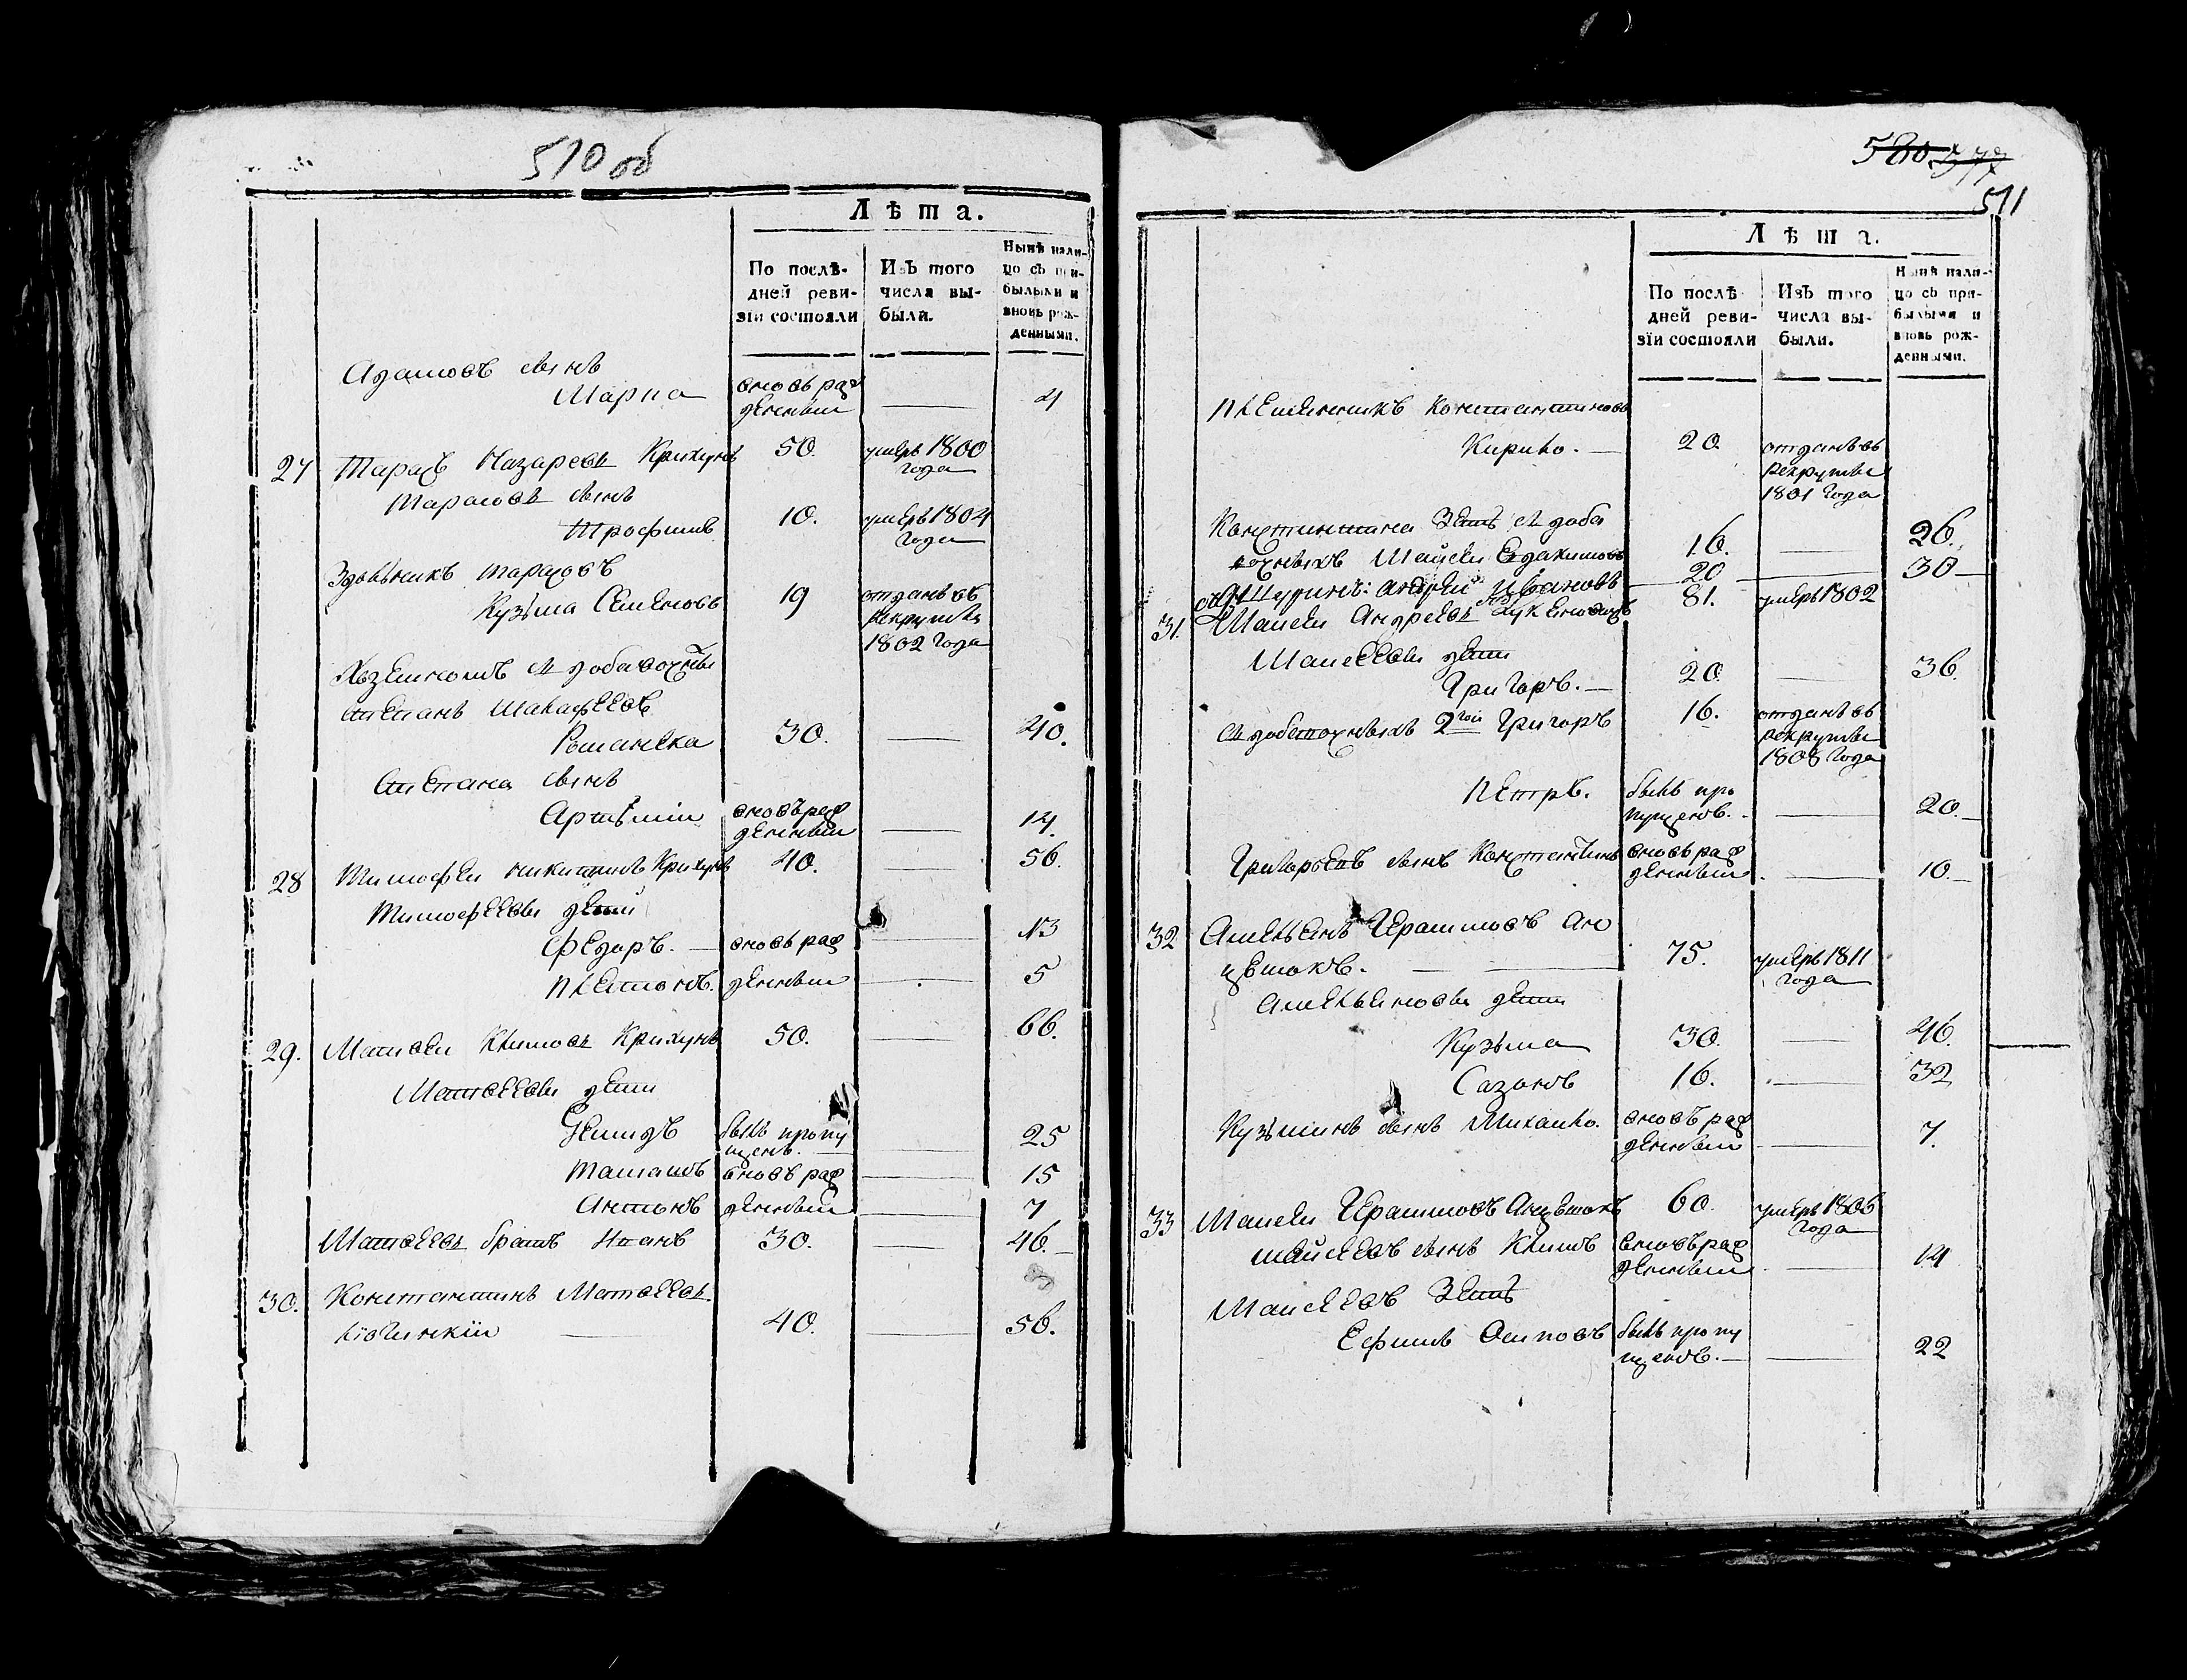 510 об
Лѣта.
По послѣ-
дней реви-
зіи состояли
Изъ того
числа вы-
были.
Нынѣ нали-
цо съ при-
былыми и
вновь рож-
денными.
Адамовъ сынъ
Марко вновь раж
денный — 4
27 Тарасъ Назаревъ Крикунъ 50. умеръ 1800
года
Тарасовъ сынъ
Трофимъ 10. умеръ 1804
года
Здольникъ тарасовъ
Кузьма Семеновъ 19 отданъ въ
рекруты
1802 года
Степанъ Макафеевъ
Романька 30. — 40.
Степана сынъ
Артѣмій вновь раж
денный — 14.
28 Тимофей никитинъ Крикунъ 40. — 56.
Тимофеевы дети
Федоръ. — вновь раж — 13
Платонъ. денныи — 5
29. Матвеи Климовъ Крикунъ 50. — 66.
Матвеевы дети
Демидъ былъ пропу
щенъ. — 25
вновь раж — 15
Антонъ денный — 7
Матвеевъ братъ Иванъ 30. — 46.
30. Константинъ Матвеевъ
40. — 56.
580. 577
511
Лѣта.
По послѣ-
дней реви-
зіи состояли
Изъ того
числа вы-
были.
Нынѣ нали-
цо съ при-
былыми и
вновь рож-
денными.
Племенникъ Константиновъ
Кирило. — 20 отданъ въ
рекруты
1801 года
Константина Зеть
Мойсей Евдакимовъ 16. — 26.
андрей Ивановъ 20 — 30
31. Моисеи Андреевъ 81. умеръ 1802
Моисеевы дети
Григоръ. — 20. — 36.
2гой Григоръ 16. отданъ въ
рекруты
1808 года
Петръ. былъ про
пущенъ. — 20.
Григорьевъ сынъ Константинъ вновь раж
денный — 10.
32 Емельянъ Герасимовъ Ан
цыток. — 75. умеръ 1811
года
Емельяновы дети
Кузьма 30. — 46.
Сазонъ 16. — 32
Кузьминъ сынъ Михаило. вновь раж
денный — 7.
33 Моисеи Герасимовъ 60. умеръ 1806
года
мойсеевъ сынъ Климъ вновь раж
денный — 14
Моисеевъ Зеть
Ефимъ Осиповъ былъ пропу
щенъ. — 22